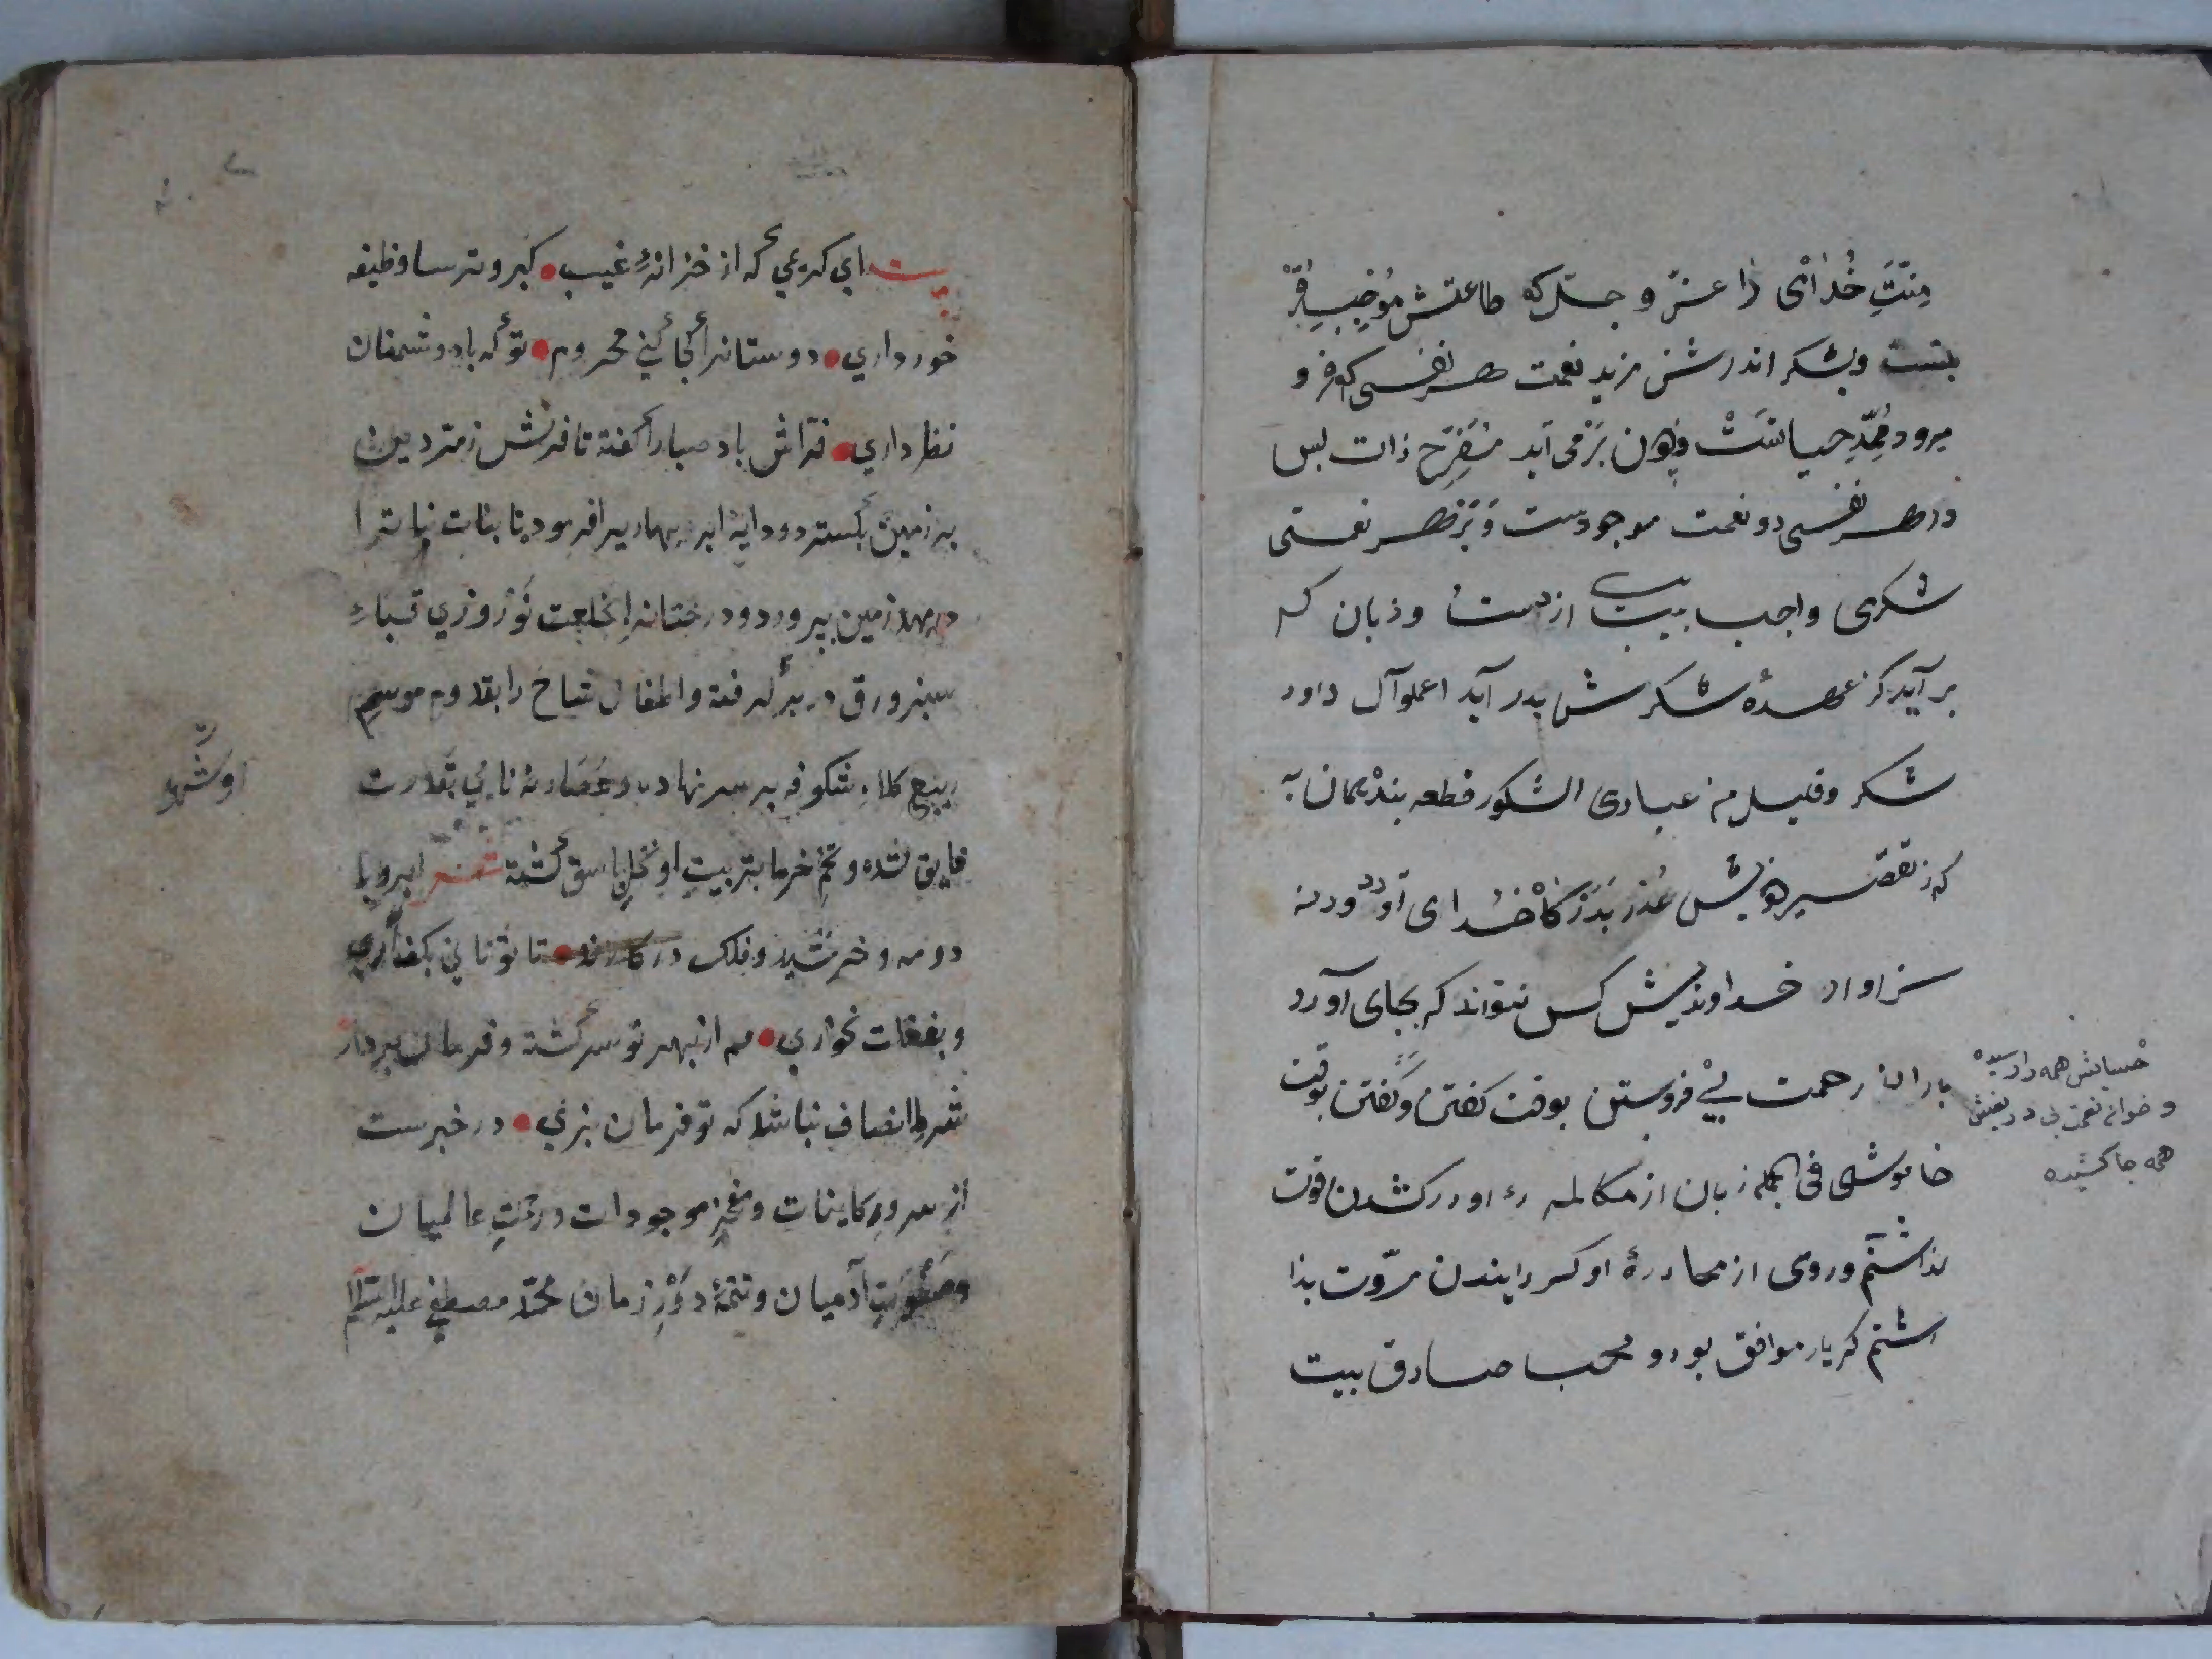 منّتَ خُدای را عزّ و جلّ که طاعتش مُوْجِبِ قُرْ
بتست وبشکر اندرش مزید نعمت هر نفسی که فرو
میرود مُمِدِّ حیاتَسَتْ وچون بَرْمی آید مُفَرِّح ذات بس
در هر نفسی دو نعمت موجودست وَبَر هر نعمتی
شکری واجب بیت از دست وزبان که
بر آید کز عهدهٔ شکرش بدر آید اعملو آل داود
شکر وقلیل من عبادی الشکور قطعه بنده همان به
که ز تقصیر خویش عُذر بَدَرْکَاهْ خدای آورد ورنه
سزاوار خداوندیش کس نتواند که بجای آورد
باران رحمت بی
حسابش همه را رسیده
وخوان نعمت بی دریغش
همه جا کشیده
فروبستن بوقت کفتن وکفتن بوقت
خاموشی فی الجمله زبان از مکالمه او درکشدن قوت
نداشتم وروی از محادرهٔ او کردایندن مروّت ندا
اشتم که یار موافق بود و محب صادق بیت
بیت ای کریمی که از خزانهٔ غیب کبر وترسا وظیفه
خورداری دوستانرا کجا کنی محروم تو که با دوشمنان
نظر داری فرّاش باد صبارا کفته تا فرش زمردین
بر زمین بکسترد ودایهٔ ابر بهاریرا فرمود تا بنات نباترا
در مهد زمین بپرورد ودرختانرا بخلعت نَوْروزی قباءِ
سبز ورق در بر کرفته واطفال شاخ را بقدوم موسم
ربیع کلاه شکوفه بر سر نهاده وعُصَارهٔ نایی بقدرت
او شَهْد
فایق شده وتخم خرما بتربیتِ او نخلِ باسق کشته شعر ابر وبا
دو مه وخرشید وفلک در کارند تا تو نانی بکف آری
وبغفلت نخوری همه از بهر تو سرکشته وفرمان بردار
شرط انصاف نباشد که تو فرمان نبری در خبرست
از سرورِ کاینات ومفخرِ موجودات ورحمتِ عالمیان
وصَفْوَتِ آدمیان وتتمّهٔ دَوْرِ زمان محمّد مصطفی علیه السّلام